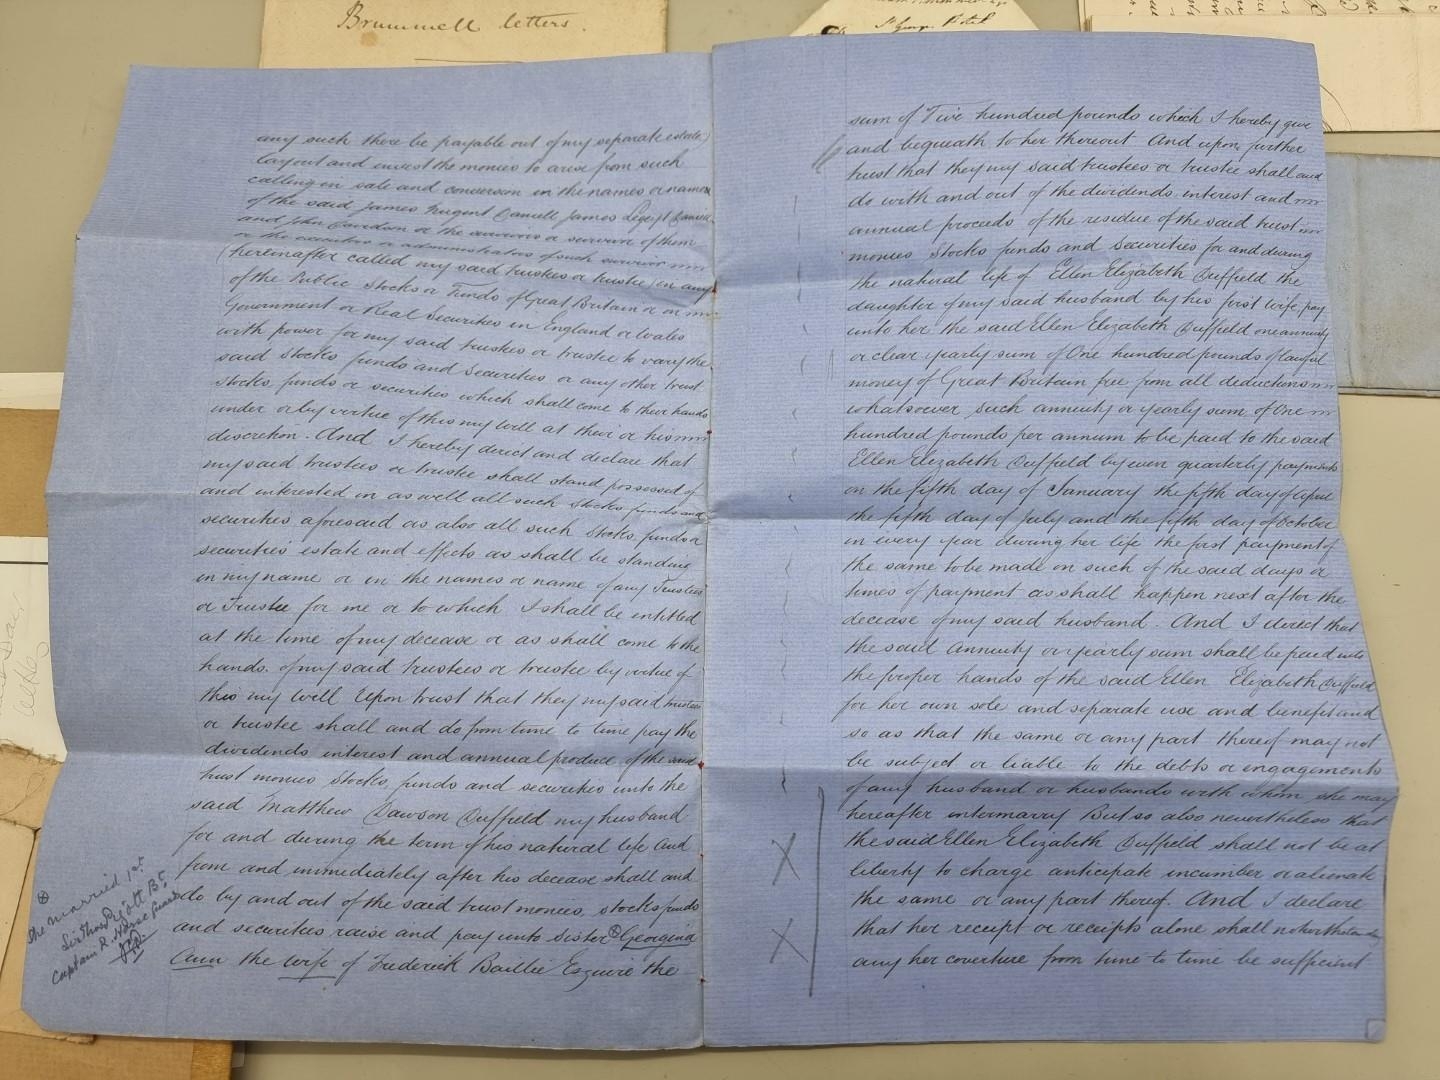 Brummell letters.
any such there be payable out of my separate estate)
lay out and invest the monies to arise from such
calling in sale and conversion in the names or name
of the said James Nugent Daniell James Daniell
and John or the survivors or survivor of them
or the executors or administrators of such survivor
(hereinafter called my said trustees or trustee) in any
of the Public Stocks or Funds of Great Britain or on
Government or Real Securities in England or Wales
with power for my said trustees or trustee to vary the
said Stocks funds and Securities or any other trust
stocks, funds or securities which shall come to their hands
under or by virtue of this my will at their or his
discretion. And I hereby direct and declare that
my said trustees or trustee shall stand possessed of
and interested in as well all such stocks funds and
securities aforesaid as also all such stocks, funds or
securities estate and effects as shall be standing
in my name or in the names or name of any Trustees
or Trustee for me or to which I shall be entitled
at the time of my decease or as shall come to the
hands of my said trustees or trustee by virtue of
this my will Upon trust that they my said trustees
or trustee shall and do from time to time pay the
dividends interest and annual produce of the said
trust monies stocks, funds and securities unto the
said Matthew Dawson Duffield my husband
for and during the term of his natural life And
from and immediately after his decease shall and
do by and out of the said trust monies, stocks, funds
and securities raise and pay unto Sister ⊗ Georgina
Ann the wife of Frederick Baillie Esquire the
⊗
She married 1st
Bt.
Captain R. Horse Guards
sum of Five hundred pounds which I hereby give
and bequeath to her thereout And upon further
trust that they my said trustees or trustee shall and
do with and out of the dividends interest and
annual proceeds of the residue of the said trust
monies Stocks funds and Securities for and during
the natural life of Ellen Elizabeth Duffield the
daughter of my said husband by his first wife, pay
unto her the said Ellen Elizabeth Duffield one annuity
or clear yearly sum of One hundred pounds of lawful
money of Great Britain free from all deductions
whatsoever such annuity or yearly sum of One
hundred pounds per annum to be paid to the said
Ellen Elizabeth Duffield by even quarterly payments
on the fifth day of January the fifth day of April
the fifth day of July and the fifth day of October
in every year during her life the first payment of
the same to be made on such of the said days or
times of payment as shall happen next after the
decease of my said husband. And I direct that
the said Annuity or yearly sum shall be paid into
the proper hands of the said Ellen Elizabeth Duffield
for her own sole and separate use and benefit and
so as that the same or any part thereof may not
be subject or liable to the debts or engagements
of any husband or husbands with whom she may
hereafter intermarry But so also nevertheless that
the said Ellen Elizabeth Duffield shall not be at
liberty to charge anticipate incumber or alienate
the same or any part thereof. And I declare
that her receipt or receipts alone shall notwithstanding
any her coverture from time to time be sufficient